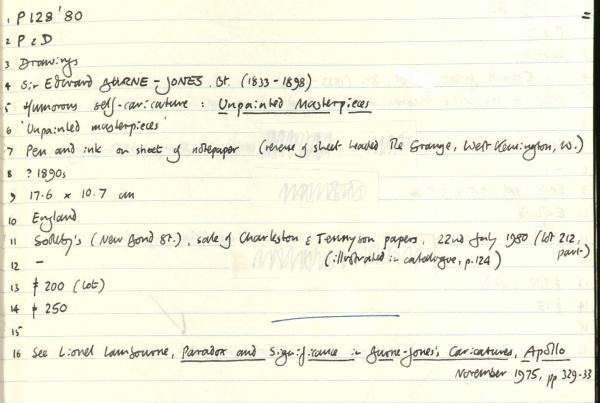 1 P128'80
2 P & D
3 Drawings
4 Sir Edward BURNE-JONES, Bt. (1833-1898)
5 Humorous self-caricature : Unpainted Masterpieces
6 'Unpainted masterpieces'
7 Pen and ink on sheet of notepaper (reverse of sheet headed The Grange, West Kensington, W.)
8 ? 1890s
9 17.6 x 10.7 cm
10 England
11 Sotheby's (New Bond St.), sale of Charleston & Tennyson papers, 22nd July 1980 (lot 212, part)
12 - (illustrated in catalogue, p.124)
13 £ 200 (lot)
14 £ 250
15
16 See Lionel Lambourne, Paradox and Significance in Burne-Jones's Caricatures, Apollo
November 1975, pp 329-33